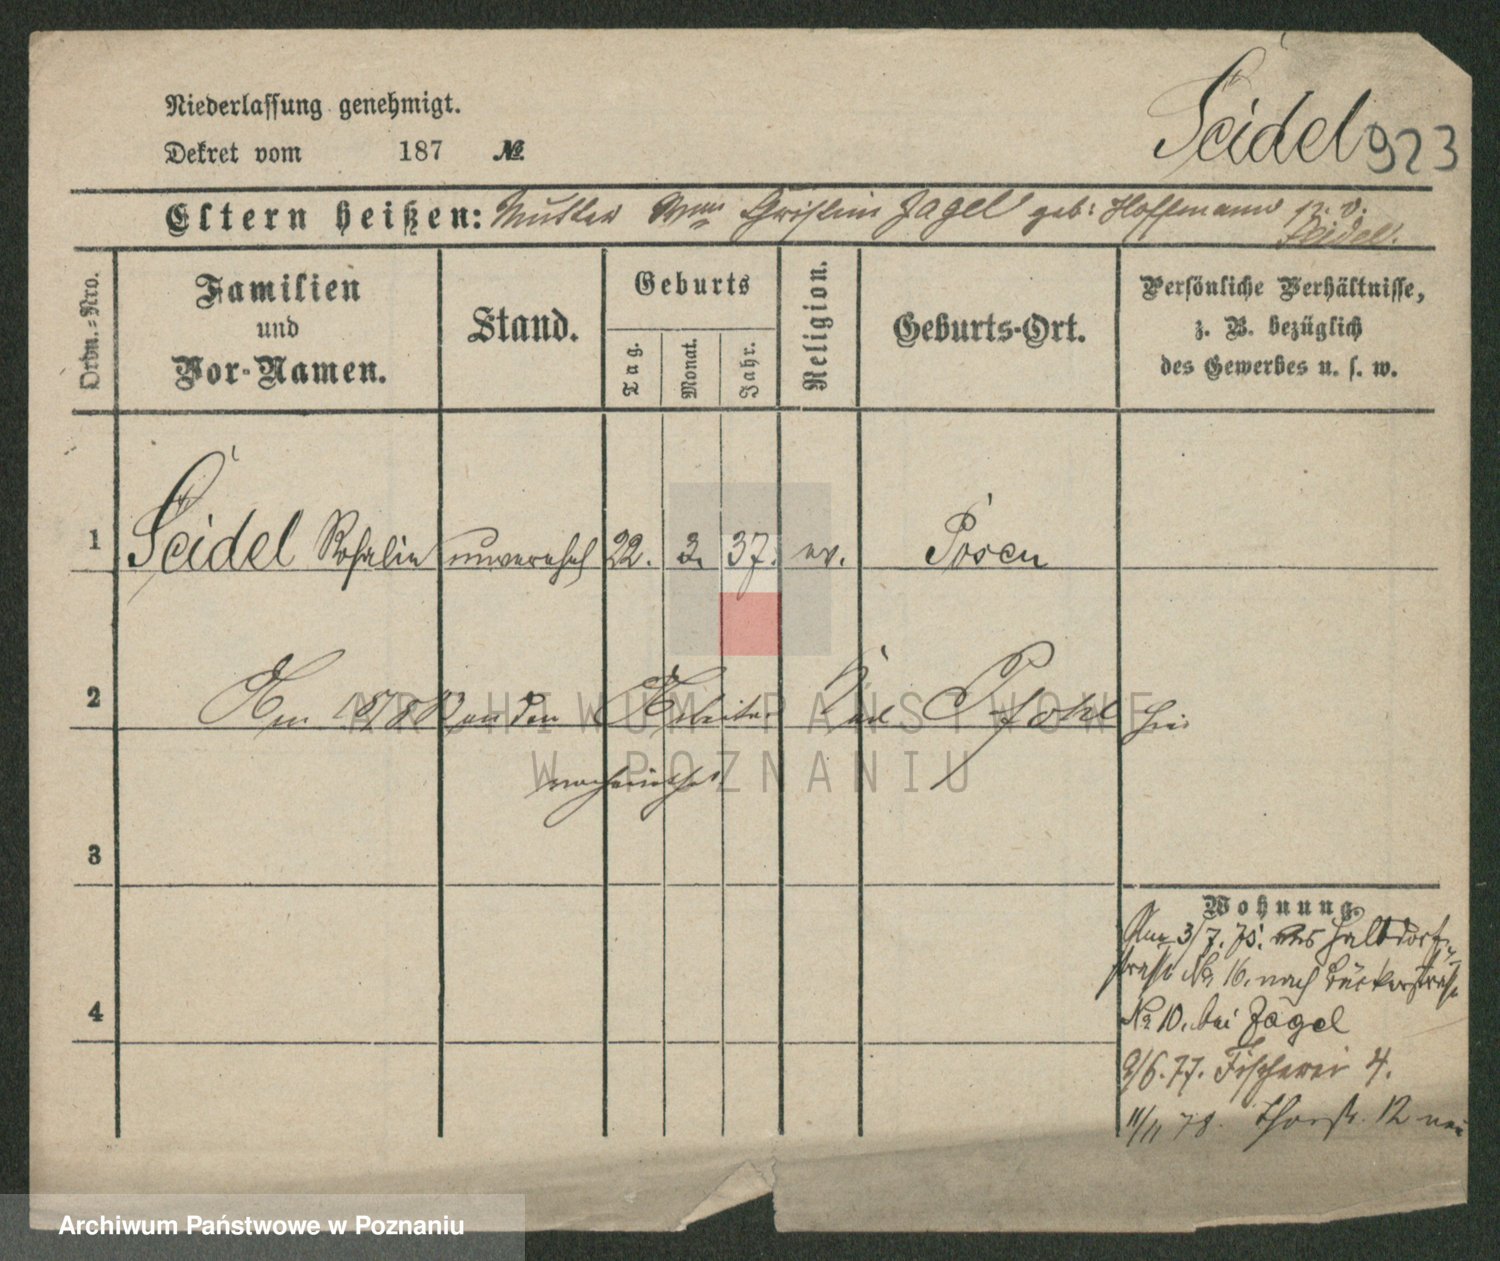 Niederlassung genehmigt.
Dekret vom 187 №
Seidel 923
Eltern heißen: Mutter Wwe Christine Jagel geb: Hoffmann
Seidel.
Ordn.-Nro.
Familien
und
Vor-Namen.
Stand.
Geburts
Tag.
Monat.
Jahr.
Religion.
Geburts-Ort.
Persönliche Verhältnisse,
z. B. bezüglich
des Gewerbes u. s. w.
1 Seidel Rosalie unverehel 22. 2. 37. ev. Posen
2 an den Arbeiter Carl Pfohl hier
verheirathet.
3
4
Wohnung.
Am 3/7. 75. aus Halbdorf-
straße No 16. nach Bäckerstraße
No 10. bei Jagel
9/6. 77. Fischerei 4.
11/11 78. Thorstr. 12
ARCHIWUM PAŃSTWOWE
W POZNANIU
Archiwum Państwowe w Poznaniu